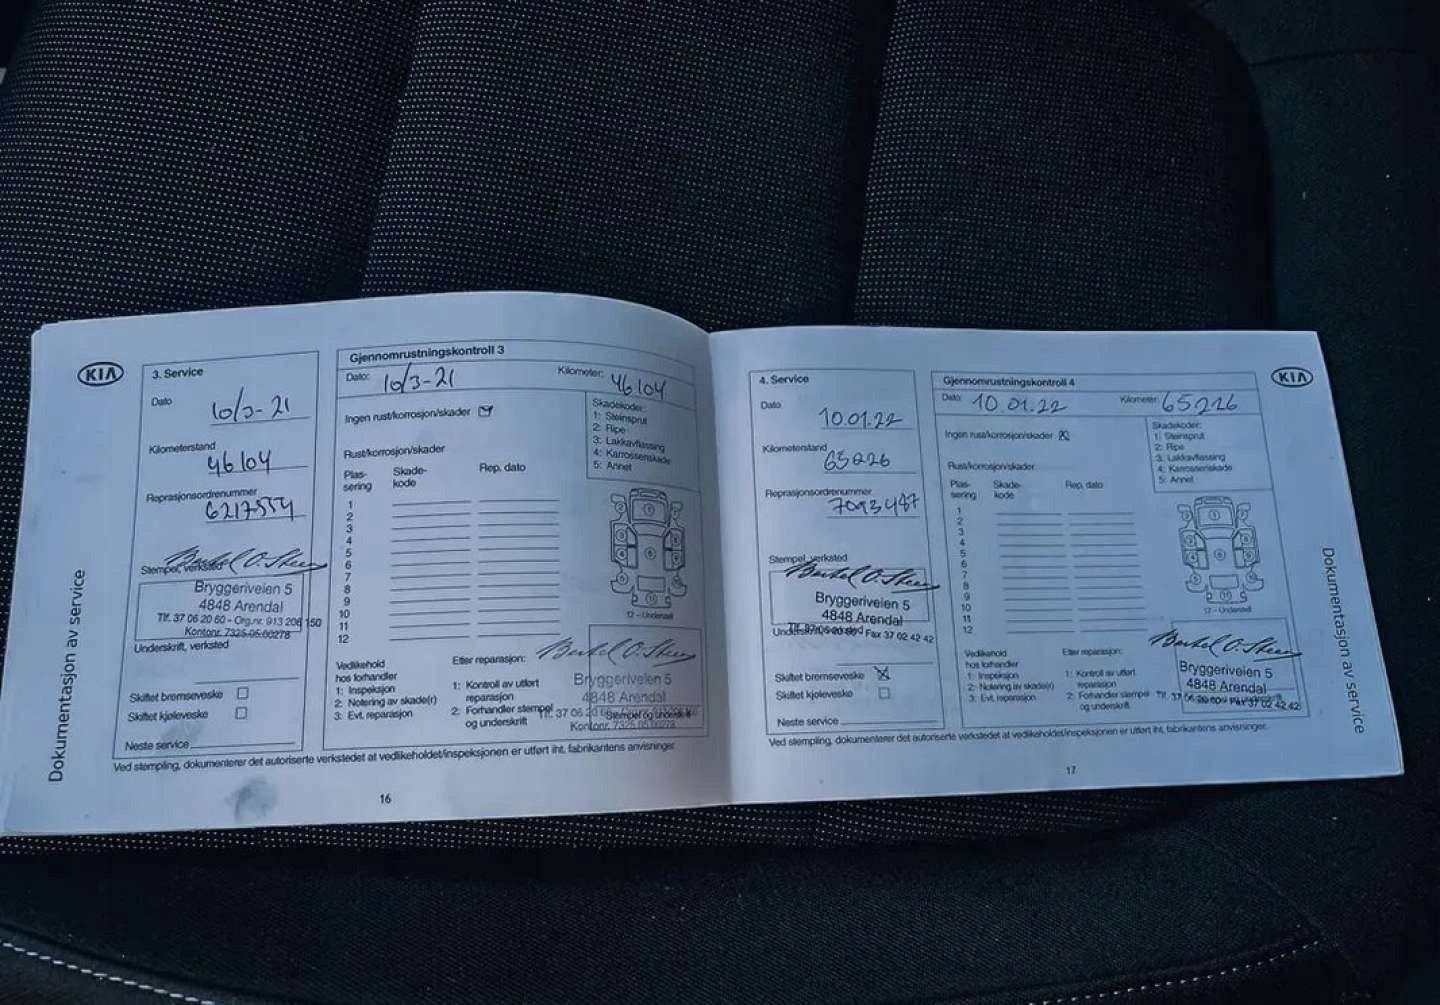 KIA
Dokumentasjon av service
3. Service
Dato
10/3-21
Kilometerstand
46104
Reprasjonsordrenummer
6217554
Stempel, verksted
Bryggeriveien 5
4848 Arendal
Tlf. 37 06 20 60 - Org.nr. 913 206 150
Kontonr. 7325.05.00278
Underskrift, verksted
Skiftet bremsevæske
Skiftet kjølevæske
Neste service
Gjennomrustningskontroll 3
Dato: 10/3-21
Kilometer: 46104
Ingen rust/korrosjon/skader
Skadekoder:
1: Steinsprut
2: Ripe
3: Lakkavflassing
4: Karrosseriskade
5: Annet
Rust/korrosjon/skader
Plas-
sering
Skade-
kode
Rep. dato
1
2
3
4
5
6
7
8
9
10
11
12
12 – Understell
Vedlikehold
hos forhandler
1: Inspeksjon
2: Notering av skade(r)
3: Evt. reparasjon
Etter reparasjon:
1: Kontroll av utført
reparasjon
2: Forhandler stempel
og underskrift
Bryggeriveien 5
4848 Arendal
Stempel og underskrift
Kontonr. 7325.05.00278
Ved stempling, dokumenterer det autoriserte verkstedet at vedlikeholdet/inspeksjonen er utført iht. fabrikantens anvisninger.
16
4. Service
Dato
10.01.22
Kilometerstand
65226
Reprasjonsordrenummer
7093487
Stempel, verksted
Bryggeriveien 5
4848 Arendal
Tlf. 37 06 20 60 - Fax 37 02 42 42
Underskrift, verksted
Skiftet bremsevæske
Skiftet kjølevæske
Neste service
Gjennomrustningskontroll 4
Dato: 10.01.22
Kilometer: 65226
Ingen rust/korrosjon/skader
Skadekoder:
1: Steinsprut
2: Ripe
3: Lakkavflassing
4: Karrosseriskade
5: Annet
Rust/korrosjon/skader
Plas-
sering
Skade-
kode
Rep. dato
1
2
3
4
5
6
7
8
9
10
11
12
12 – Understell
Vedlikehold
hos forhandler
1: Inspeksjon
2: Notering av skade(r)
3: Evt. reparasjon
Etter reparasjon:
1: Kontroll av utført
reparasjon
2: Forhandler stempel
og underskrift
Bryggeriveien 5
4848 Arendal
Tlf. 37 06 20 60 - Fax 37 02 42 42
Ved stempling, dokumenterer det autoriserte verkstedet at vedlikeholdet/inspeksjonen er utført iht. fabrikantens anvisninger.
17
KIA
Dokumentasjon av service